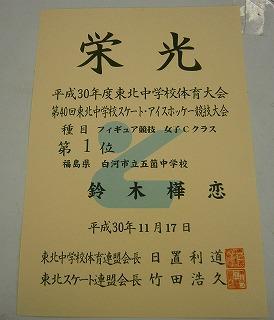 栄光
平成30年度東北中学校体育大会
第40回東北中学校スケート・アイスホッケー競技大会
種目 フィギュア競技 女子Cクラス
第1位
福島県 白河市立五箇中学校
鈴木樺恋
平成30年11月17日
東北中学校体育連盟会長 日置利道
東北スケート連盟会長 竹田浩久